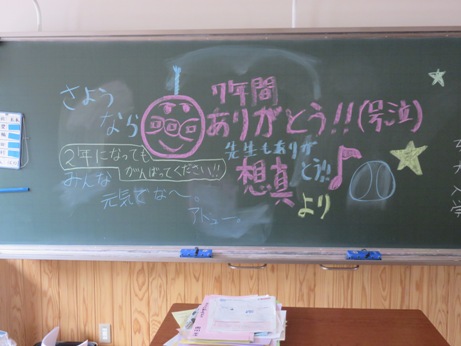 さよう
なら
7年間
ありがとう!!(号泣)
先生もありが
とう!!
想真
より
2年になっても
がんばってください!!
みんな
元気でな〜。